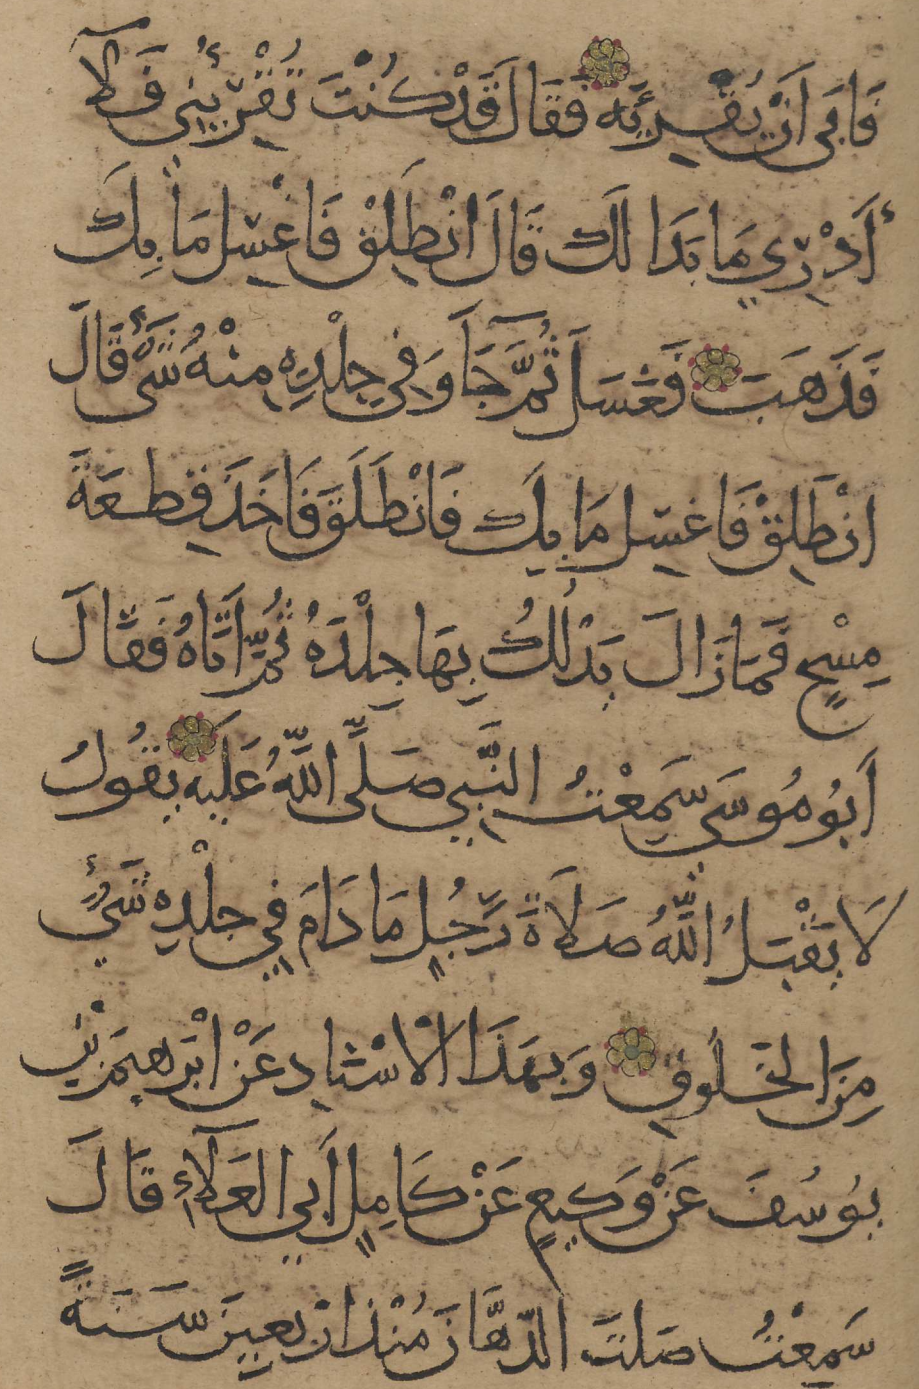 فَابَى اَنْ يُقْرِيَه فَقَالَ قَدْ كُنْتَ تُقْرِئُنِي فَلَا
أَدْرِي مَا بَدَا لَكَ قَالَ انْطَلِقْ فَاغْسِل مَا بِكَ
فَذَهَبَ فَغَسَلَ ثُمَّ جَآ وَفِي جِلْدِهِ مِنْهُ شَيْءٌ قَالَ
انْطَلِقْ فَاغسِل مَا بِكَ فَانْطَلَقَ فَاخَذَ قِطعَةَ
مِسْحٍ فَمَا زَالَ يَدْلُكُ بِهَا جِلْدَهُ ثُمَّ اَتَاهُ فَقَالَ
اَبُو مُوسَى سَمِعْتُ النَّبِي صَلَّى اللَّهُ عَلَيه يَقُولُ
لَا يَقْبَلُ اللَّهُ صَلَاةَ رَجُلٍ مَا دَامَ فِي جلْدِهِ شَيْءٌ
مِنَ الخَلُوقِ وَبِهَذَا الْاسْنَادِ عَنْ ابْرَهِيمَ بْنِ
يُوسُفَ عَنْ وَكِيعٍ عَنْ كَامِلٍ اَبِي العَلَآءِ قَالَ
سَمِعْتُ صَلتَ الدَّهَّانَ مُنْذ ارْبَعِينَ سَنَةً